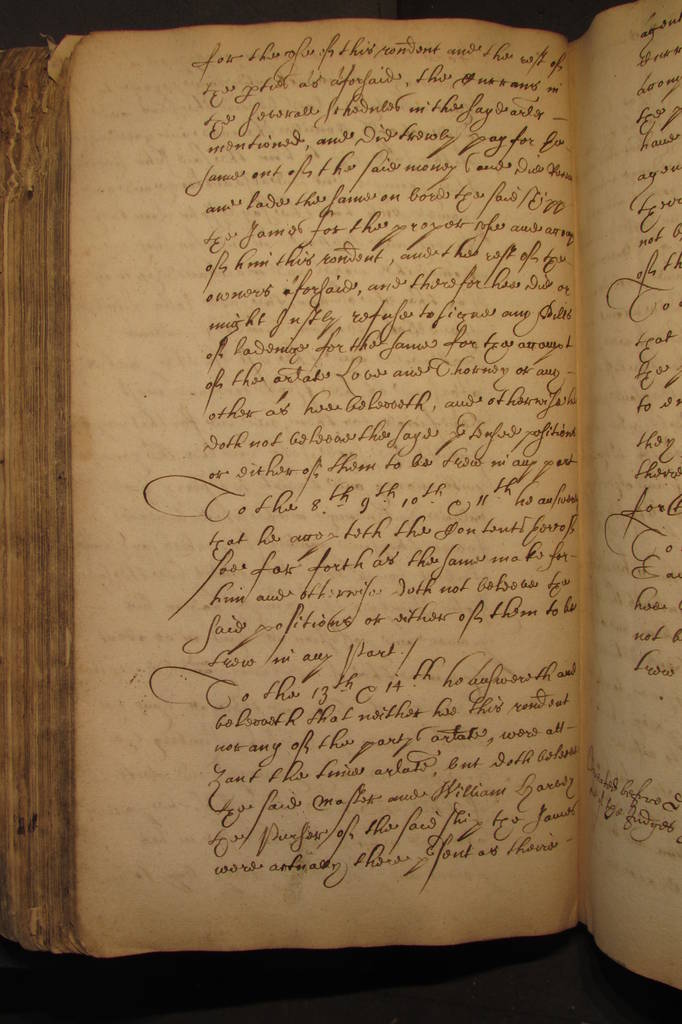 for the use of this rondent and the rest of
the pties as aforsaid, the Currans in
the severall schedules in the sayd arler
mentioned, and did trewly pay for the
same out of the said money and did
and lade the same on bord the said shipp
the James for the proper use and accompt
of him this rondent, and the rest of the
owners aforsaid, and therefor hee did or
might Justly refuse to signe any Bills
of ladeinge for the same for the accompt
of the arlate Love and Thorney or any
other as hee beleeveth, and otherwise he
doth not beleeve the sayd ptensed positions
or either of them to be trew in any part
To the 8.th 9th 10th & 11th he answereth
that he accepteth the Contents thereof
soe far forth as the same make for
him and otherwise doth not beleeve the
said positions or either of them to be
trew in any part./
To the 13th & 14th he answereth and
beleeveth that neither hee this rondent
nor any of the partys arlate, were att
Zant the time arlate, but doth beleeve
the said master and William Harvey
the Purser of the said ship the James
were actually there psent as theire
agent
the p
have
agen
not b
of th
To
that
the p
to en
they
there
for th
To
hee
not b
trew
before D
the Judges